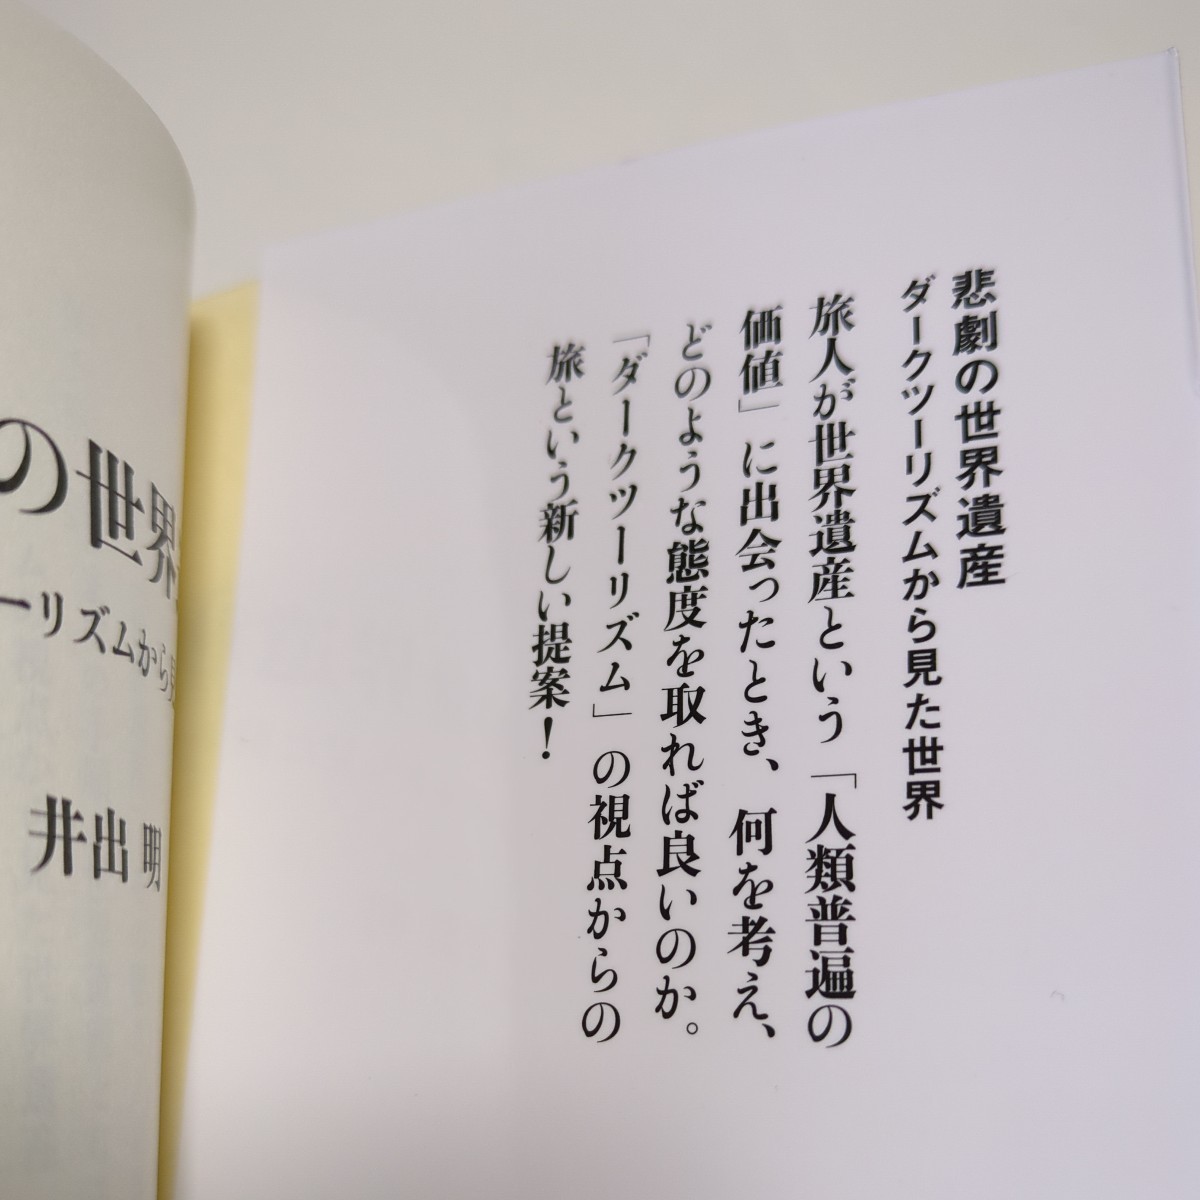 悲劇の世界遺産
ダークツーリズムから見た世界
旅人が世界遺産という「人類普遍の
価値」に出会ったとき、何を考え、
どのような態度を取れば良いのか。
「ダークツーリズム」の視点からの
旅という新しい提案！
の世界
ーリズムから見
井出 明